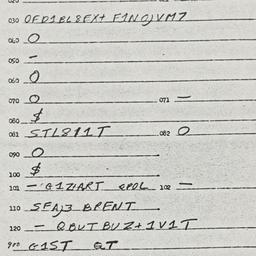 030 OFD1BL8FX+ F1NOJVM7
040 O
050 -
060 O
070 O 071 -
080 $
081 STL811T 082 O
090 O
100 $
101 102 -
110 SFAJ3 BPENT
120 - QBUT BUZ+1V1T
G1ST QT